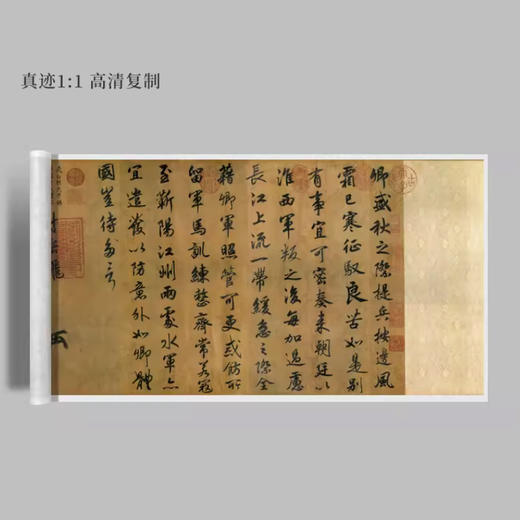 真迹1:1 高清复制
卿盛秋之際提兵按邊風
霜已寒征馭良苦如是別
有事宜可密奏來朝廷以
淮西軍叛之後每加過慮
長江上流一帶緩急之際全
藉卿軍照管可更戒飭所
留軍馬訓練整齊常若寇
至蘄陽江州兩處水軍亦
宜遣發以防意外如卿體
國豈待多言
付岳飛